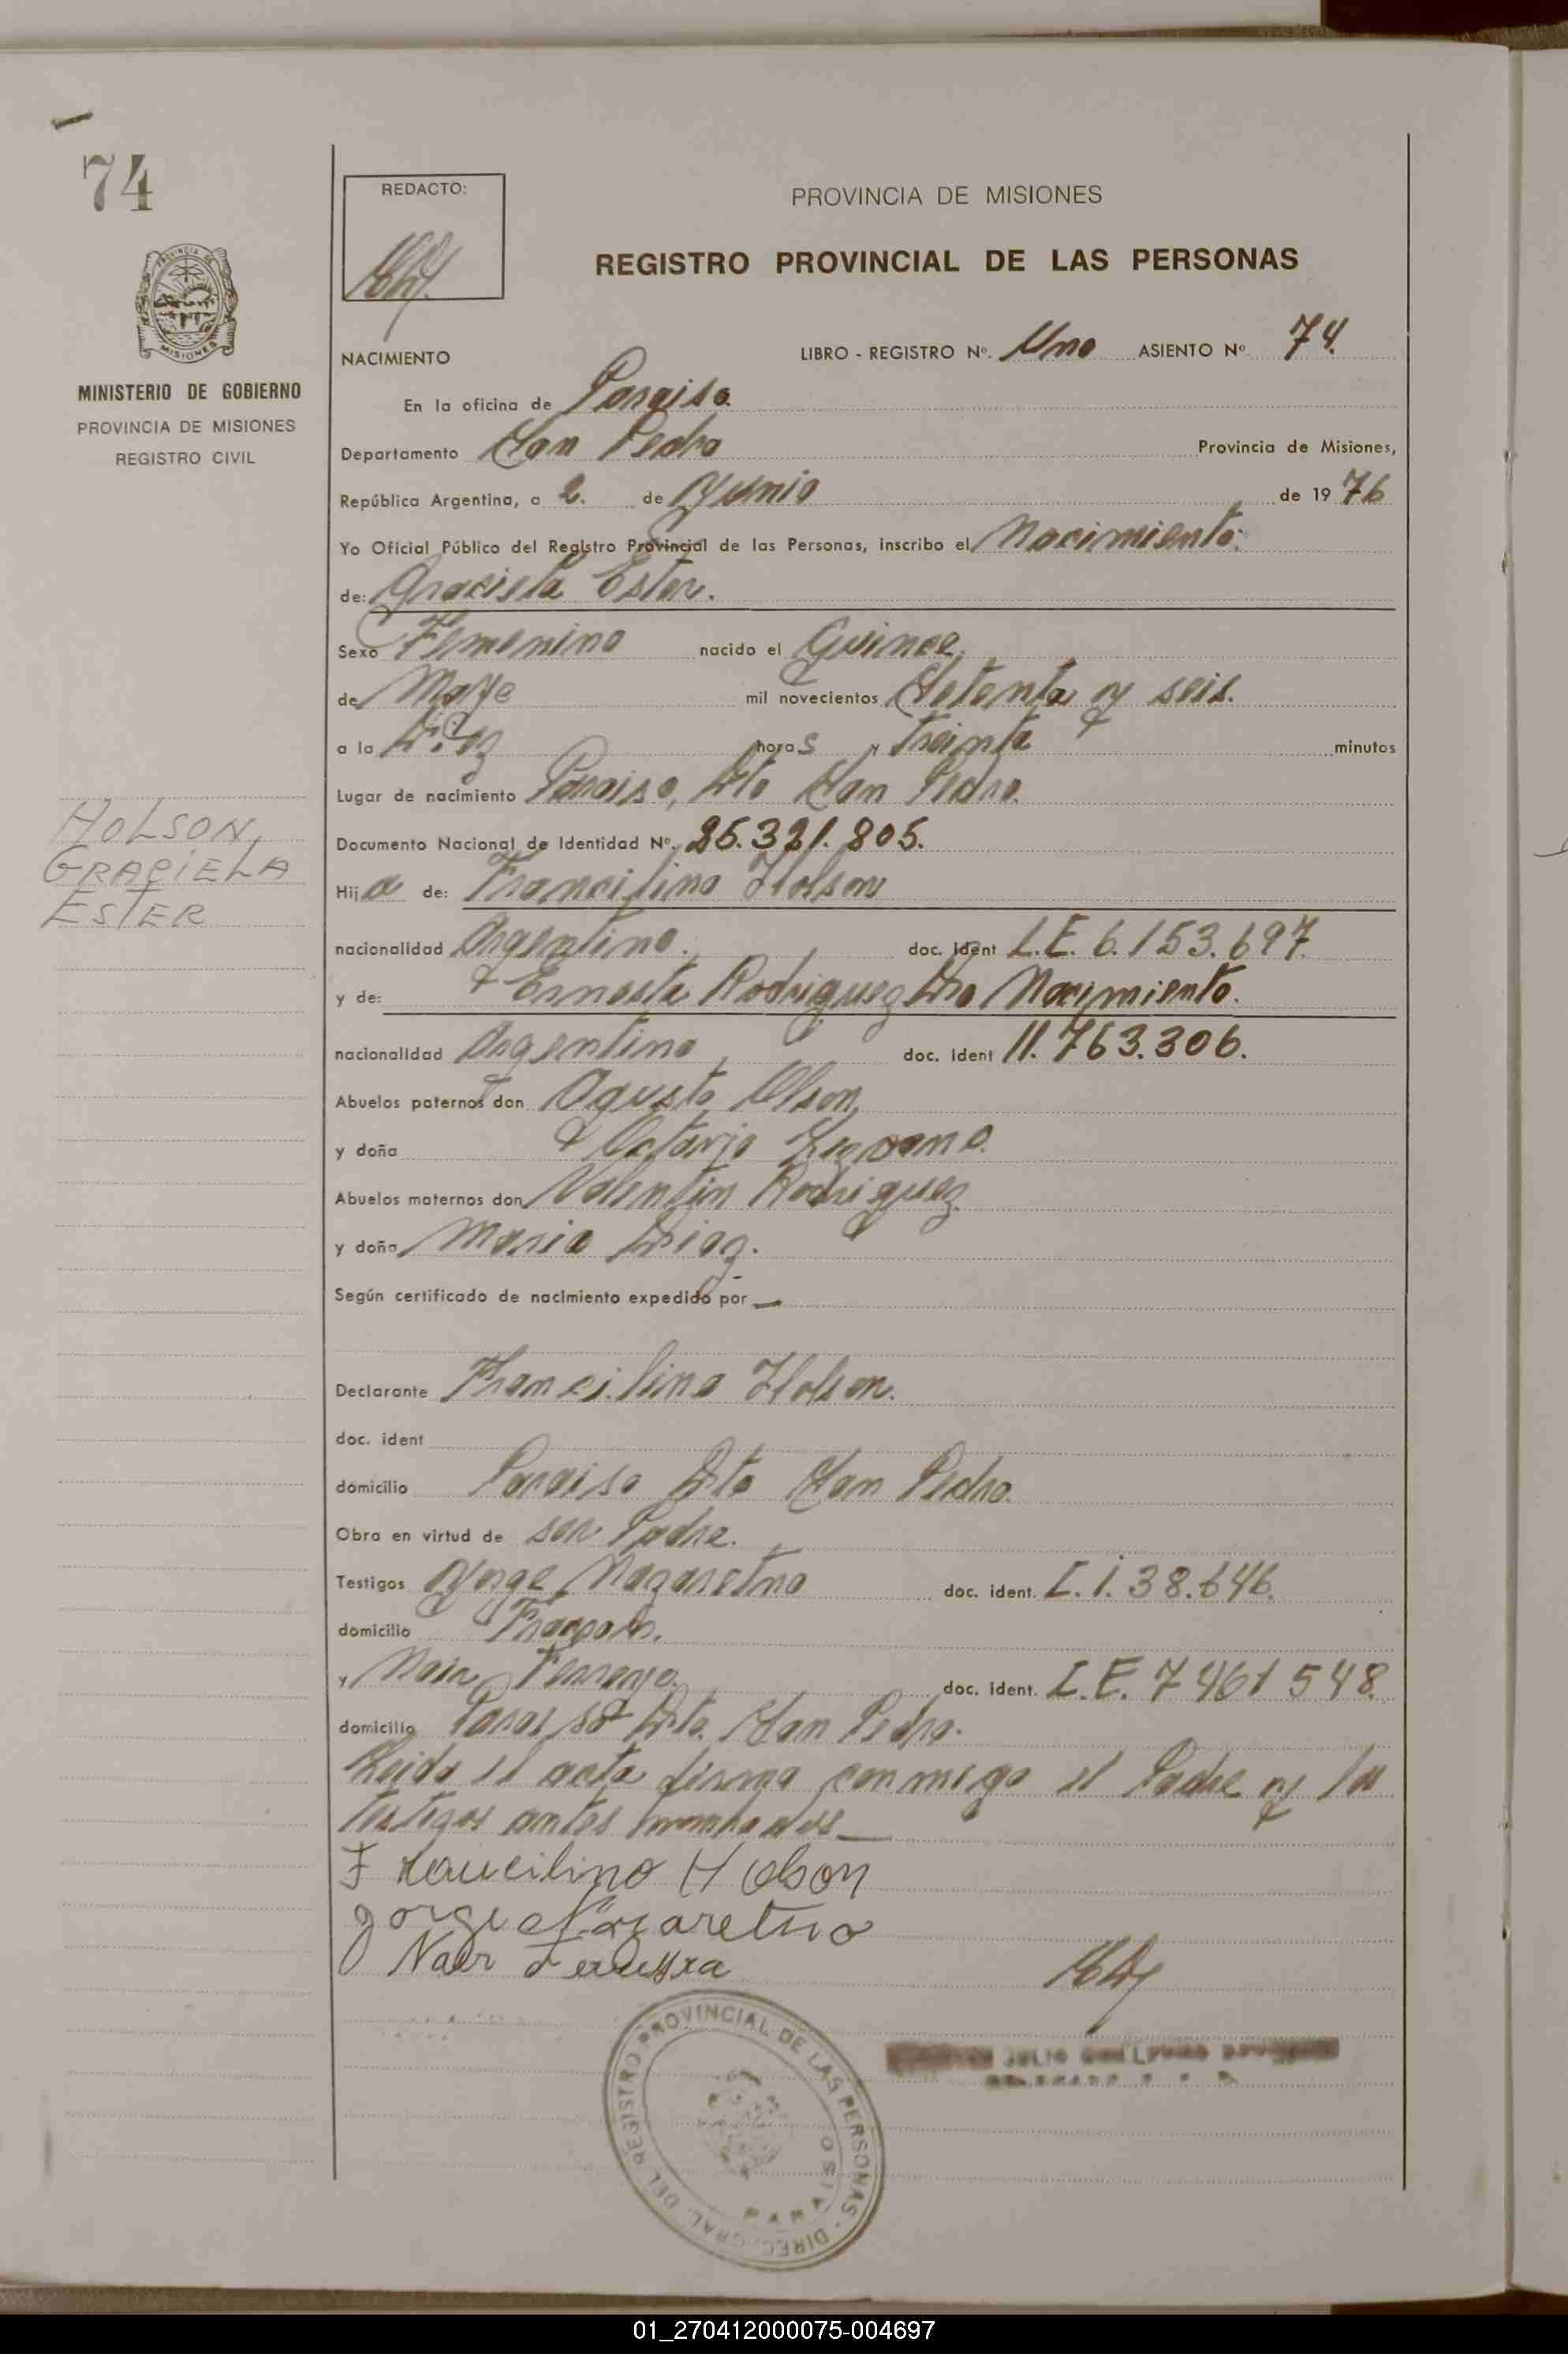 74
REDACTO:
PROVINCIA DE MISIONES
REGISTRO PROVINCIAL DE LAS PERSONAS
MISIONES
MINISTERIO DE GOBIERNO
PROVINCIA DE MISIONES
REGISTRO CIVIL
NACIMIENTO LIBRO - REGISTRO Nº. Uno ASIENTO Nº 74.
En la oficina de Paraiso.
Departamento San Pedro Provincia de Misiones,
República Argentina, a 2. de Junio de 1976
Yo Oficial Público del Registro Provincial de las Personas, inscribo el Nacimiento.
de: Graciela Ester.
Sexo Femenino nacido el Quince.
de Mayo mil novecientos Setenta y seis.
a la Diez horas y Treinta minutos
Lugar de nacimiento Paraiso, Dto San Pedro.
Documento Nacional de Identidad Nº. 25.321.805.
HOLSON,
GRACIELA
ESTER
Hija de: Francilino Holson
nacionalidad Argentino. doc. ident L.E. 6.153.697.
y de: Ernesta Rodriguez Dto Nacimiento.
nacionalidad Argentina, doc. ident 11.763.306.
Abuelos paternos don Agusto Olson,
y doña Octavia
Abuelos maternos don Valentin Rodriguez
y doña Maria Diaz.
Según certificado de nacimiento expedido por —
Declarante Francilino Holson.
doc. ident
domicilio Paraiso Dto San Pedro.
Obra en virtud de ser Padre.
Testigos Jorge Nazaretno doc. ident. C.i. 38.646.
domicilio Fracran.
y Nair Ferreyra. doc. ident. L.E. 7461548.
domicilio Paraiso Dto. San Pedro.
Leida el acta firma conmigo el Padre y los
testigos antes nombrados —
Francilino Holson
Jorge Nazaretno
Nair Ferreyra
DIREC. GRAL. DEL REGISTRO PROVINCIAL DE LAS PERSONAS
PARAISO
JULIO
01_270412000075-004697